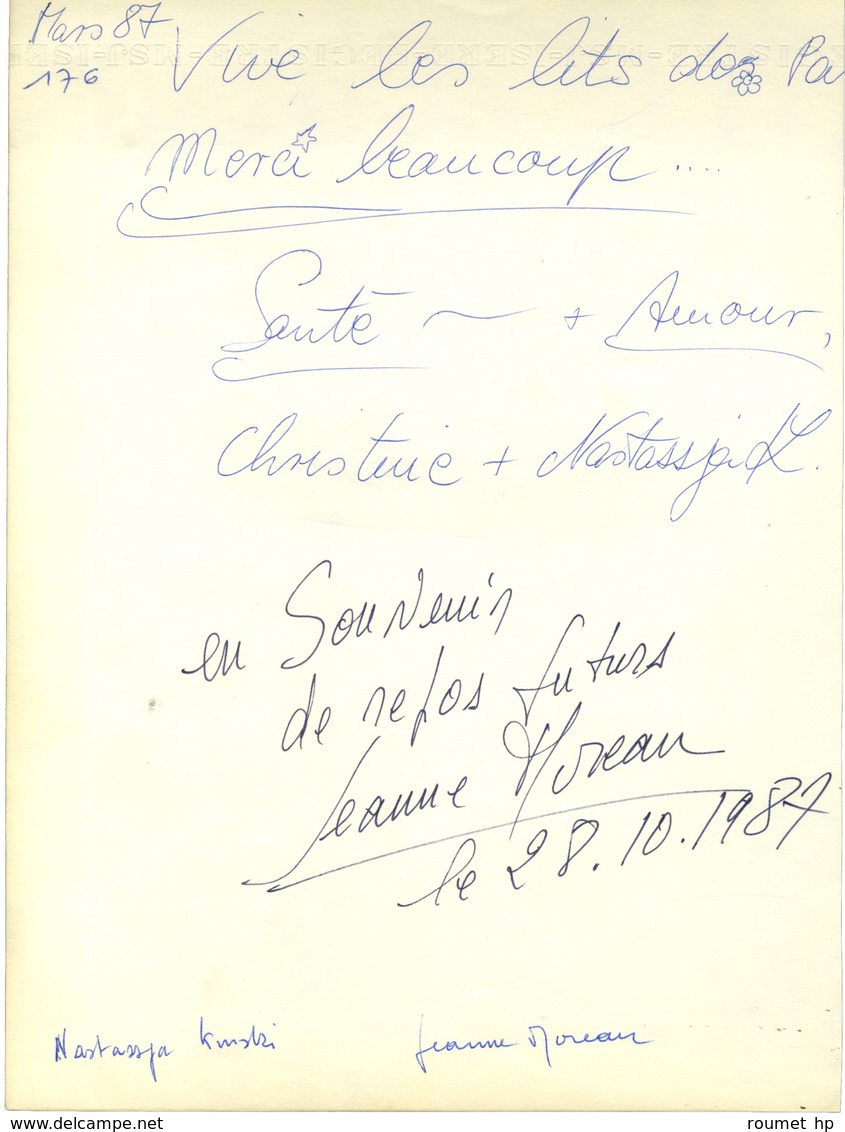 Mars 87
176
Vive les lits des Pa
Merci beaucoup ....
Santé ~ + Amour,
Christine + Nastassja K.
en Souvenir
de repos futurs
Jeanne Moreau
le 28.10.1987
Nastassja Kinski
Jeanne Moreau
www.delcampe.net
roumet hp